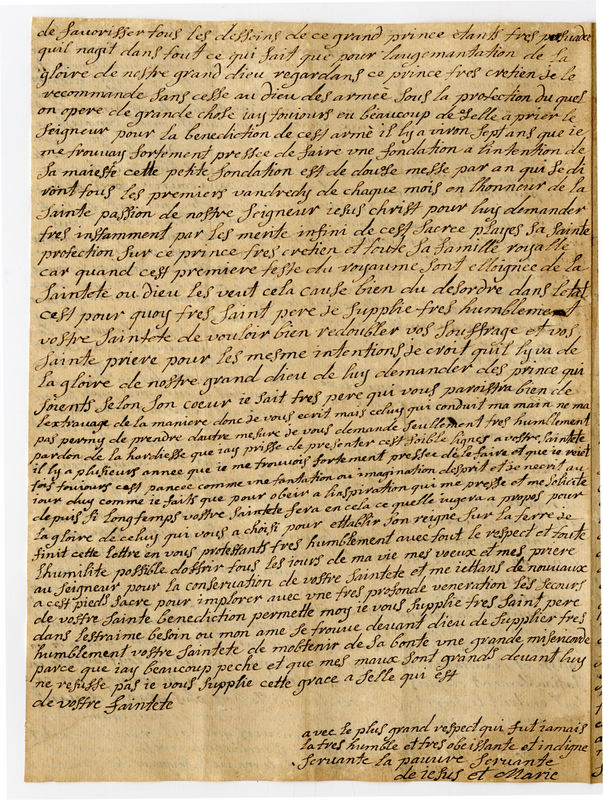 de favorisser tous les desseins de ce grand prince etants tres persuadee
quil nagit dans tout ce qui fait que pour laugemantation de la
gloire de nostre grand dieu regardans ce prince tres cretien Je le
recommande sans cesse au dieu des armée sous la protection du quel
on opere de grande chose iay toujours eu beaucoup de selle a prier le
seigneur pour la benediction de cest armé il ly a viron sept ans que ie
me trouvay fortement presseé de faire une fondation a lintention de
sa maiesté cette petite fondation est de dousse messe par an qui se di
ront tous les premiers vandredy de chaque mois en lhonneur de la
sainte passion de nostre seigneur iesus christ pour luy demander
tres instamment par les merite infini de cest sacree playes sa sainte
protection sur ce prince tres cretien et toute sa famille royalle
car quand cest premiere teste du royaume sont elloigneé de la
sainteté ou dieu les veut cela cause bien du desordre dans letat
cest pour quoy tres saint pere Je supplie tres humblement
vostre sainteté de vouloir bien redoubler vos souffrage et vos
sainte priere pour les mesme intentions Je croit quil ly va de
la gloire de nostre grand dieu de luy demander des prince qui
soients selon son coeur ie sait tres pere qui vous paroistra bien de
lextravage de la maniere donc Je vous ecrit mais celuy qui conduit ma main ne ma
pas permy de prendre dautre mesure Je vous demande seullement tres humblement
pardon de la hardiesse que iay prisse de presenter cest foible lignes a vostre sainteté
il ly a plusieurs annee que ie me trouvois fortement presseé de le faire et que ie reiet
tois toujours cest panceé comme une fantation ou imagination desprit et Je necrit au
iour duy comme ie faits que pour obeir a linspiration qui me presse et me solicite
depuis si longtemps vostre sainteté fera en cela ce quelle iugera a propos pour
la gloire de celuy qui vous a choisi pour ettablir son reigne sur la terre Je
finit cette lettre en vous protestants tres humblement avec tout le respect et toute
lhumilité possible doffrir tous les iours de ma vie mes voeux et mes priere
au seigneur pour la conservation de vostre sainteté et me iettans de nouvaux
a cest pieds sacré pour implorer avec une tres profonde veneration les secours
de vostre sainte benediction permetté moy ie vous supplie tres saint pere
dans lestraime besoin ou mon ame se trouve devant dieu de supplier tres
humblement vostre sainteté de mobtenir de sa bonté une grande misericorde
parce que iay beaucoup peché et que mes maux sont grands devant luy
ne refussé pas ie vous supplie cette grace a selle qui est
de vostre sainteté
avec le plus grand respect qui fut iamais
la tres humble et tres obeissante et indigne
servante la pauvre servante
de iesus et Marie